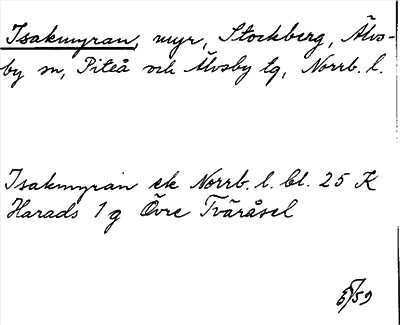 Isakmyran, myr, Stockberg, Älvs-
by sn, Piteå och Älvsby tg, Norrb. l.
Isakmyran ek Norrb. l. bl. 25 K
Harads 1 g Övre Tväråsel